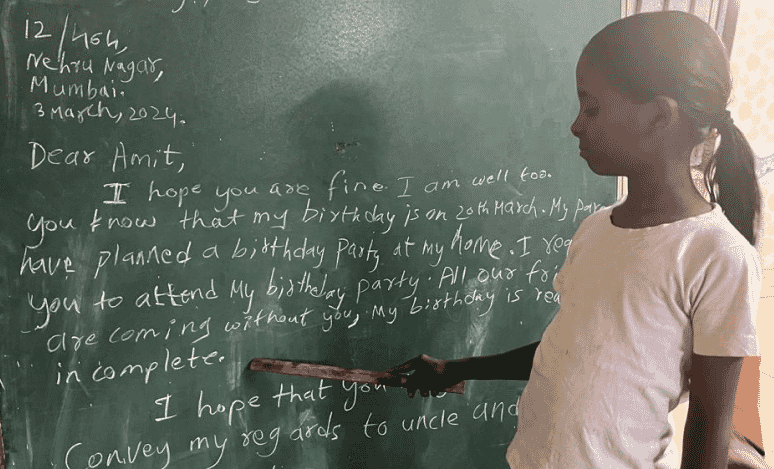 12/464,
Nehru Nagar,
Mumbai.
3 March, 2024.
Dear Amit,
I hope you are fine. I am well too.
you know that my birthday is on 20th March. My par
have planned a birthday party at my home. I req
you to attend My birthday party. All our fri
are coming without you, My birthday is rea
in complete.
I hope that you
Convey my regards to uncle and